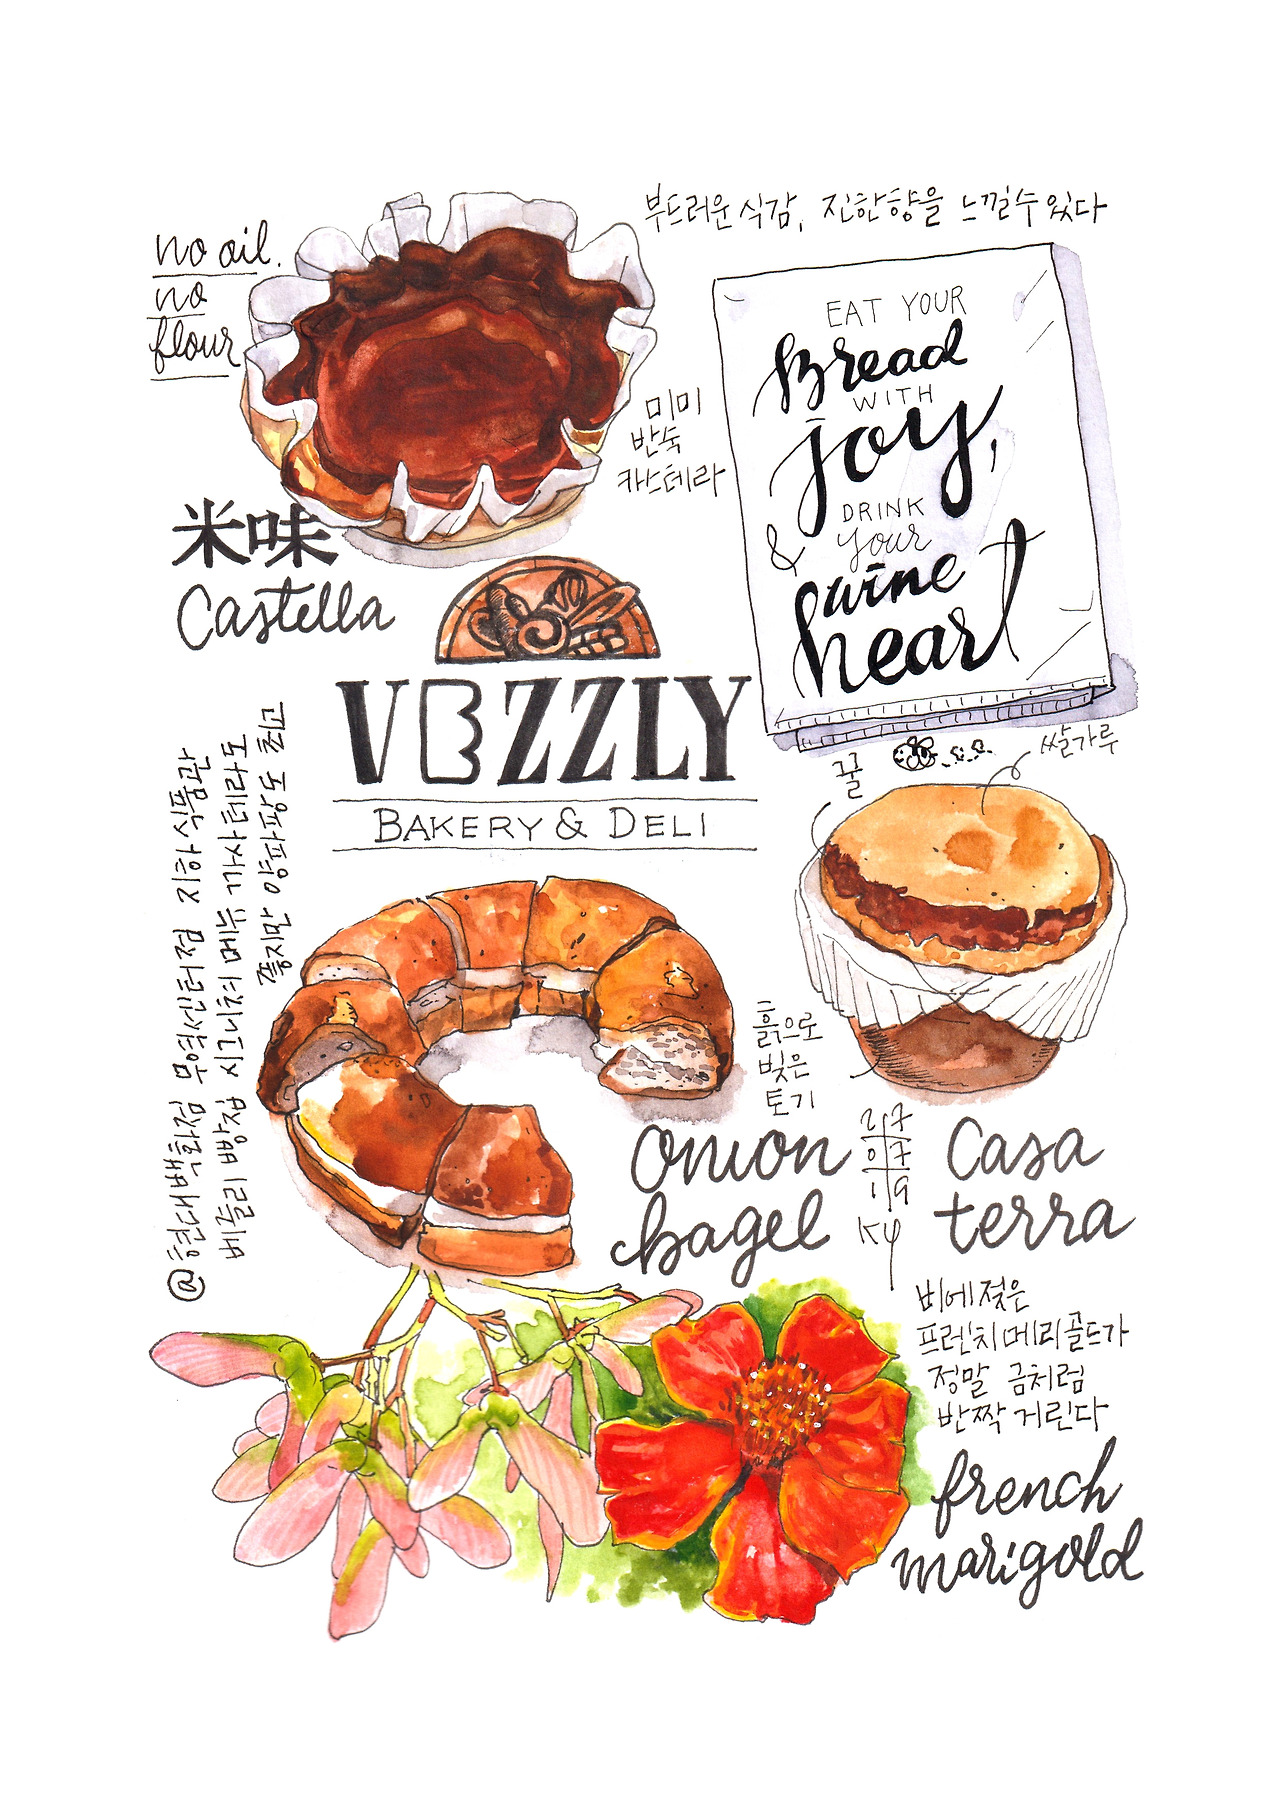 부드러운 식감, 진한향을 느낄수 있다
no oil.
no
flour
미미
반숙
카스테라
米味
Castella
EAT YOUR
Bread
WITH
joy,
DRINK
& your
wine
heart
VEZZLY
BAKERY & DELI
@현대백화점 무역센터점 지하식품관
베즐리 빵집 시그니처 메뉴 까사테라도
좋지만 양파빵도 최고
꿀
쌀가루
흙으로
빚은
토기
onion
bagel
217
07
19
KY
Casa
terra
비에 젖은
프렌치메리골드가
정말 금처럼
반짝 거린다
french
marigold